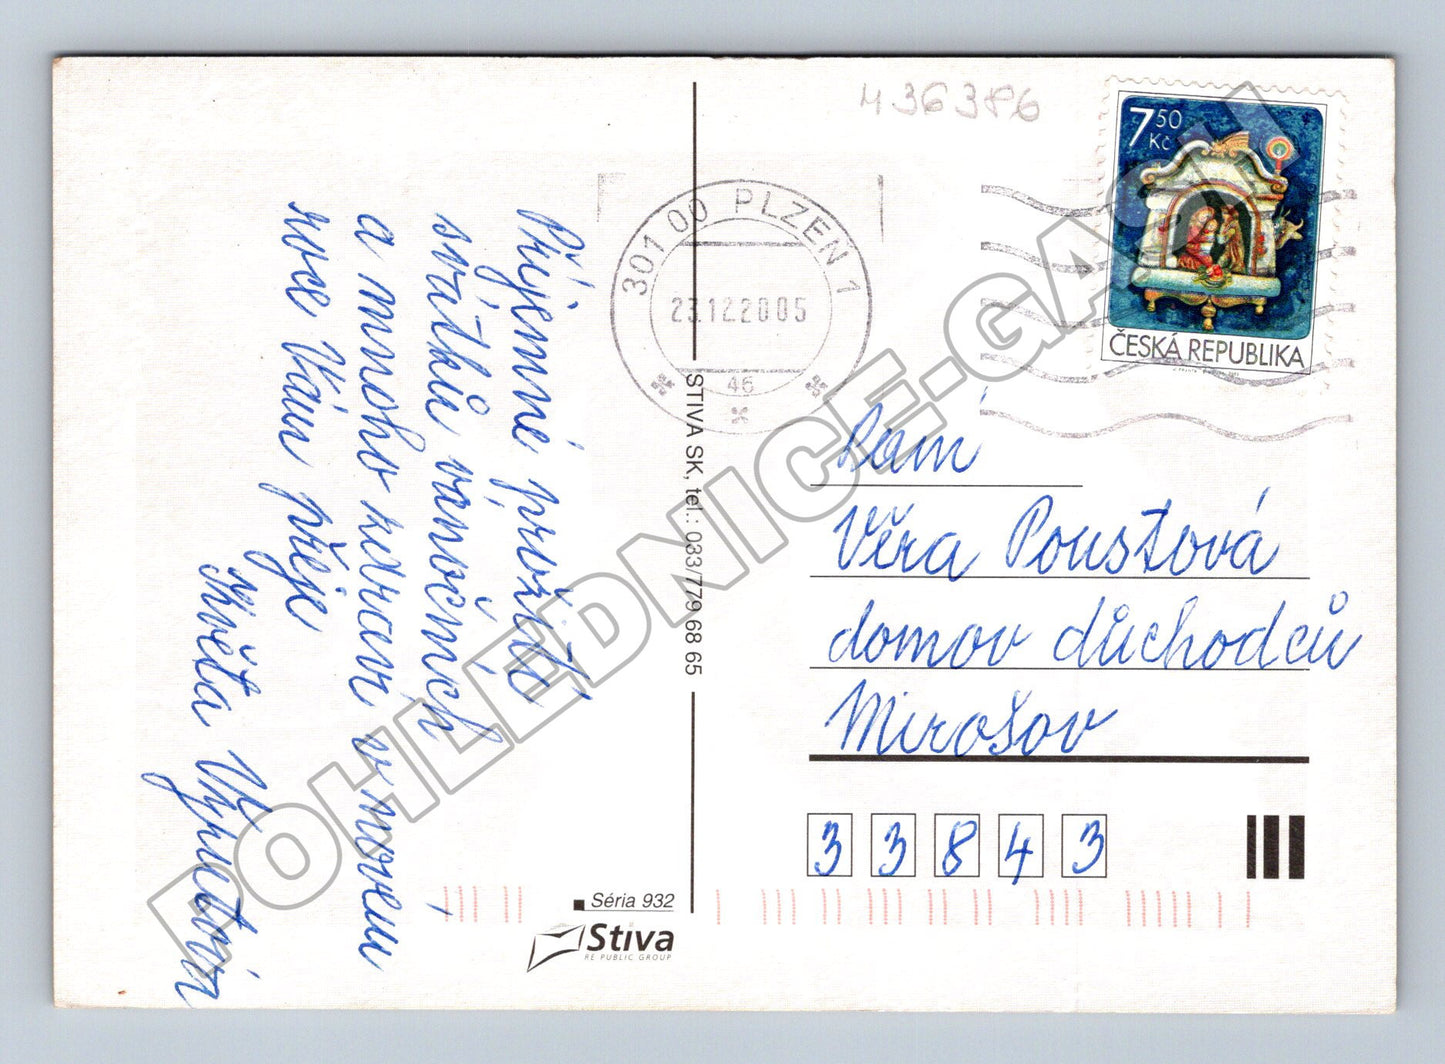 436386
7 50
Kč
ČESKÁ REPUBLIKA
301 00 PLZEŇ 1
23.12.2005
46
Příjemné prožití
svátků vánočních
a mnoho zdraví v novém
roce Vám přeje
Květa
STIVA SK, tel.: 033/779 68 65
Paní
Věra Poustová
domov důchodců
Mirošov
3 3 8 4 3
Séria 932
Stiva
RE PUBLIC GROUP
POHLEDNICE-GASH